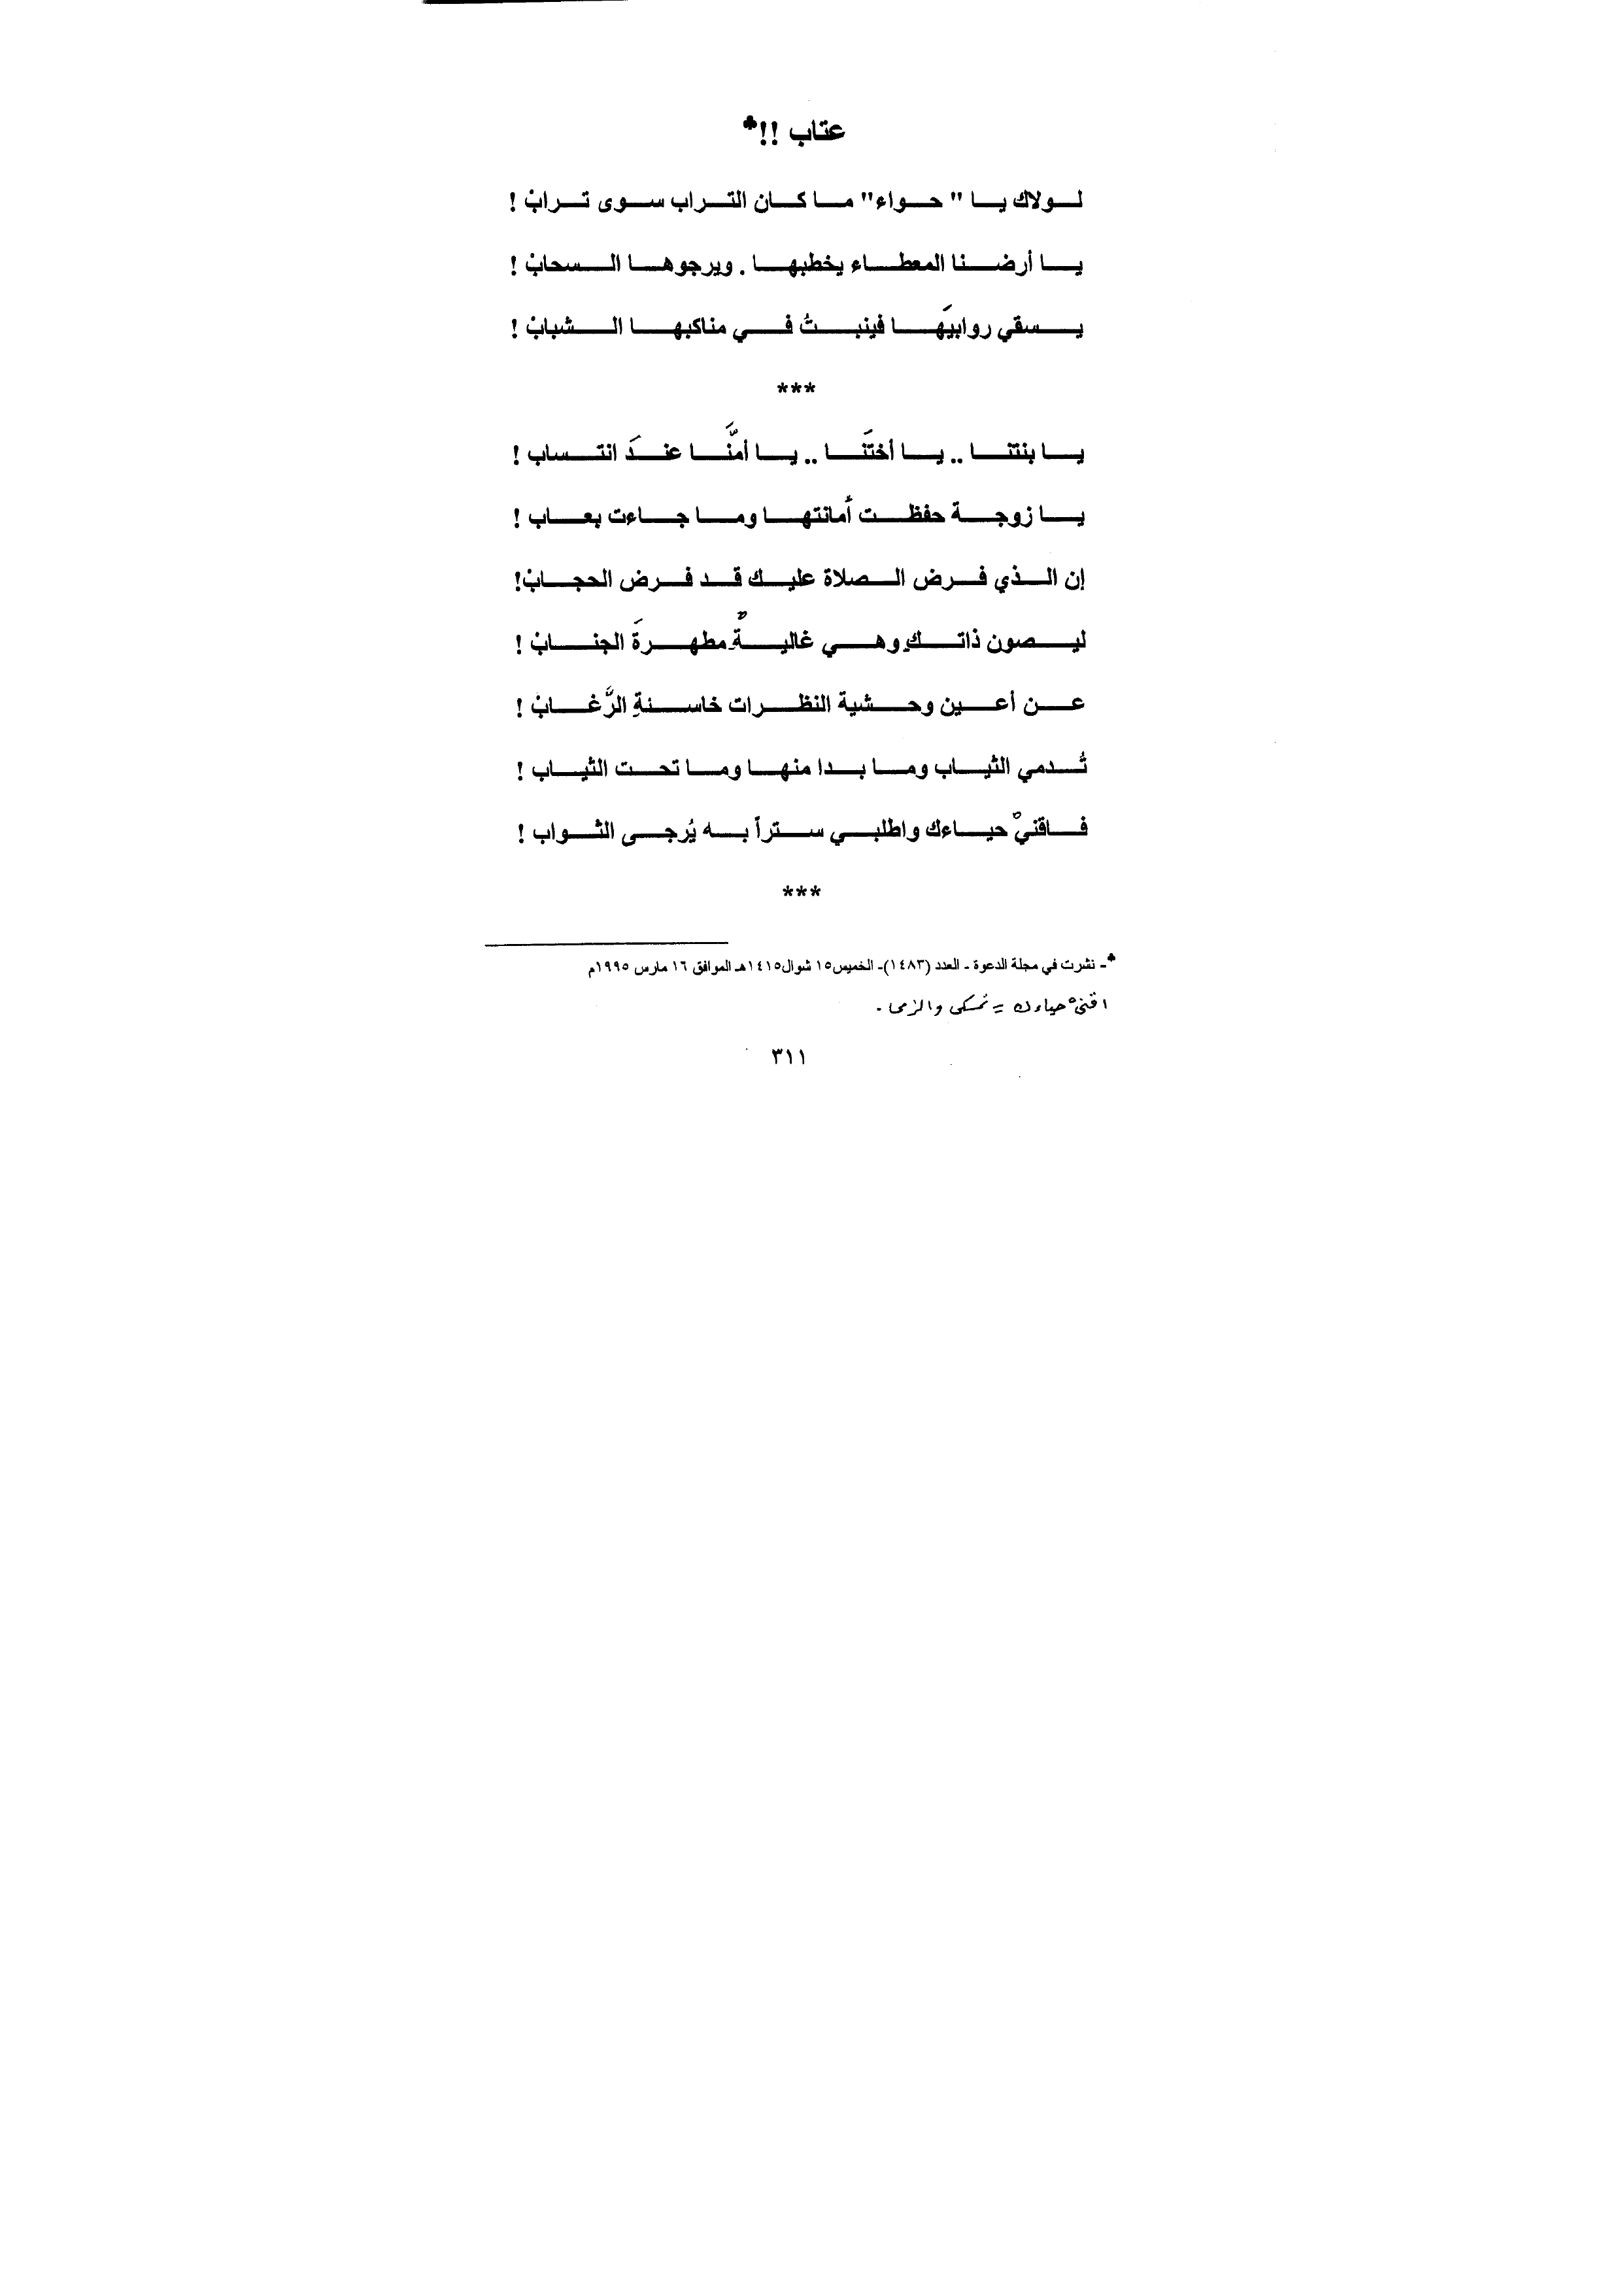 عتاب !!♣
لولاك يا " حواء" ما كان التراب سوى ترابْ !
يا أرضنا المعطاء يخطبها . ويرجوها السحابْ !
يسقي روابيَها فينبتُ في مناكبها الشبابْ !
***
يا بنتنا .. يا أختَنا .. يا أمَّنا عندَ انتساب !
يا زوجة حفظت أمانتها وما جاءت بعاب !
إن الذي فرض الصلاة عليك قد فرض الحجابْ!
ليصون ذاتكِ وهي غاليةٌ مطهرةَ الجنابْ !
عن أعين وحشية النظرات خاسنةِ الرَّغابْ !
تُدمي الثياب وما بدا منها وما تحت الثياب !
فاقنيْ حياءك واطلبي ستراً به يُرجى الثواب !
***
♣- نشرت في مجلة الدعوة - العدد (١٤٨٣)- الخميس١٥ شوال١٤١٥هـ الموافق ١٦ مارس ١٩٩٥م
اقنيْ حياءك = تمسكى والزمى .
٣١١